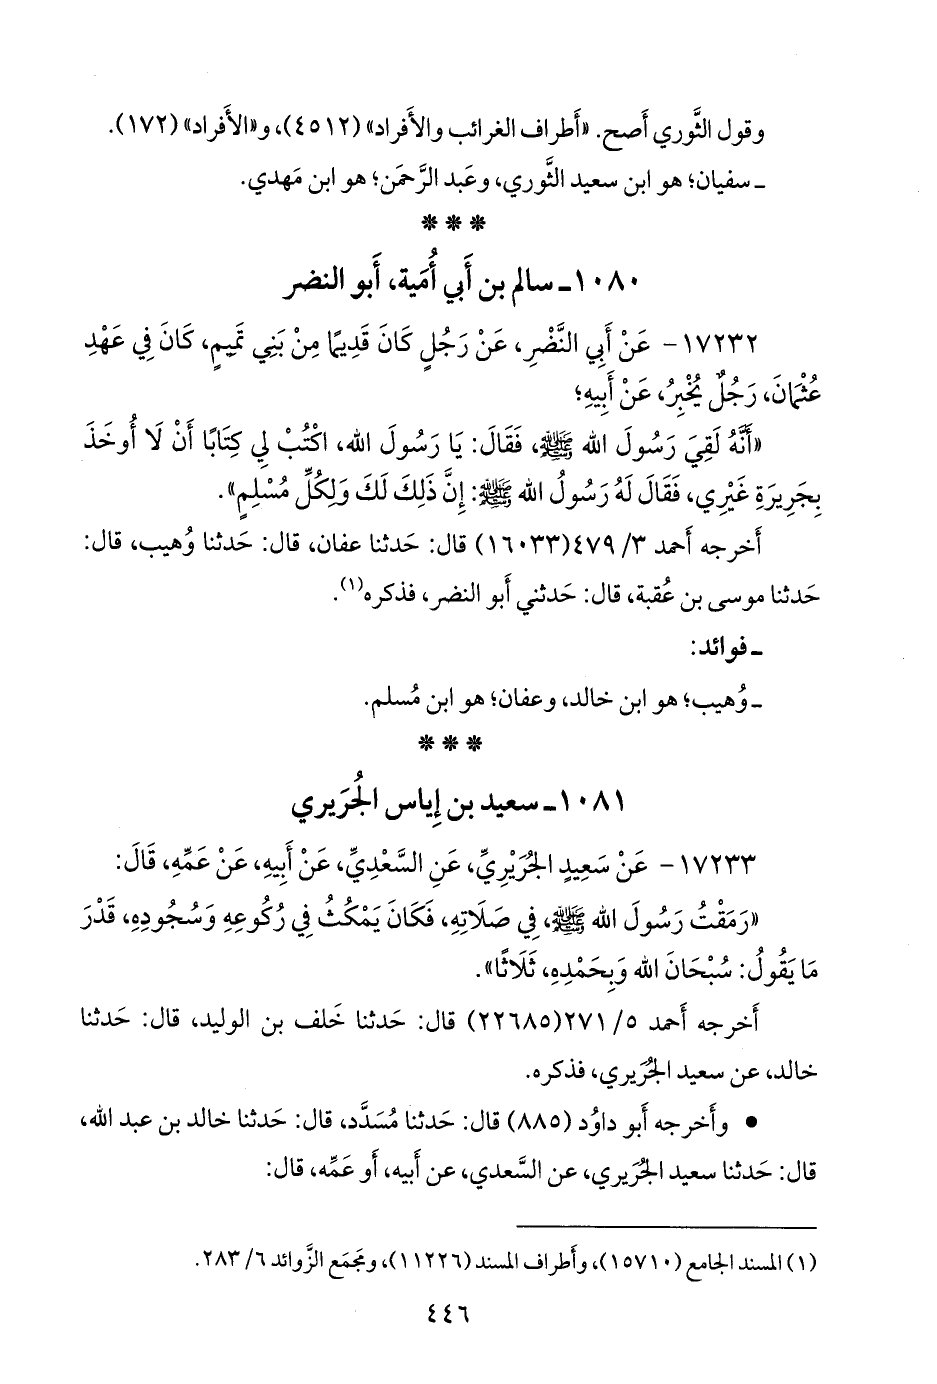 وقول الثَّوري أَصح. «أَطراف الغرائب والأَفراد» (٤٥١٢)، و«الأَفراد» (١٧٢).
ـ سفيان؛ هو ابن سعيد الثَّوري، وعَبد الرَّحمَن؛ هو ابن مَهدي.
* * *
١٠٨٠ ـ سالم بن أَبي أُمَية، أَبو النضر
١٧٢٣٢ - عَنْ أَبِي النَّضْرِ، عَنْ رَجُلٍ كَانَ قَدِيمًا مِنْ بَنِي تَمِيمٍ، كَانَ فِي عَهْدِ
عُثْمَانَ، رَجُلٌ يُخْبِرُ، عَنْ أَبِيهِ؛
«أَنَّهُ لَقِيَ رَسُولَ الله ﷺ، فَقَالَ: يَا رَسُولَ الله، اكْتُبْ لِي كِتَابًا أَنْ لَا أُوخَذَ
بِجَرِيرَةِ غَيْرِي، فَقَالَ لَهُ رَسُولُ الله ﷺ: إِنَّ ذَلِكَ لَكَ وَلِكُلِّ مُسْلِمٍ».
أَخرجه أَحمد ٣/ ٤٧٩(١٦٠٣٣) قال: حَدثنا عفان، قال: حَدثنا وُهيب، قال:
حَدثنا موسى بن عُقبة، قال: حَدثني أَبو النضر، فذكره(١).
ـ فوائد:
ـ وُهيب؛ هو ابن خالد، وعفان؛ هو ابن مُسلم.
* * *
١٠٨١ ـ سعيد بن إِياس الجُرَيري
١٧٢٣٣ - عَنْ سَعِيدٍ الجُرَيْرِيِّ، عَنِ السَّعْدِيِّ، عَنْ أَبِيهِ، عَنْ عَمِّهِ، قَالَ:
«رَمَقْتُ رَسُولَ الله ﷺ، فِي صَلَاتِهِ، فَكَانَ يَمْكُثُ فِي رُكُوعِهِ وَسُجُودِهِ، قَدْرَ
مَا يَقُولُ: سُبْحَانَ الله وَبِحَمْدِهِ، ثَلَاثًا».
أَخرجه أَحمد ٥/ ٢٧١(٢٢٦٨٥) قال: حَدثنا خَلف بن الوليد، قال: حَدثنا
خالد، عن سعيد الجُرَيري، فذكره.
• وأَخرجه أَبو داوُد (٨٨٥) قال: حَدثنا مُسَدَّد، قال: حَدثنا خالد بن عبد الله،
قال: حَدثنا سعيد الجُرَيري، عن السَّعدي، عن أَبيه، أَو عَمِّه، قال:
(١) المسند الجامع (١٥٧١٠)، وأَطراف المسند (١١٢٢٦)، ومَجمَع الزَّوائد ٦/ ٢٨٣.
٤٤٦